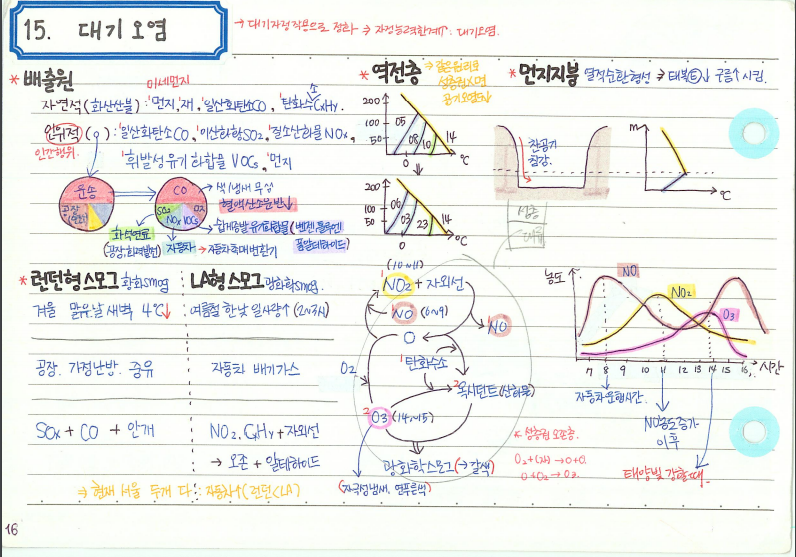 15. 대기오염
→ 대기자정작용으로 정화 → 자정능력한계↑: 대기오염.
* 배출원
미세먼지
자연적 (화산산불) : '먼지,'재, '일산화탄소CO, '탄화수소CxHy.
인위적 ( ) : '일산화탄소CO, '이산화황SO2, '질소산화물NOx,
인간행위.
'휘발성유기화합물 VOCs, '먼지
운송
공장
CO
SO2
O3
NOx
VOCs
→ 색/냄새 무성
혈액산소운반↓
화석연료
(공장, 화력발전)
자동차
→ 자동차촉매변환기
* 역전층
200
100
50
05
08
10
14
0
℃
200
100
50
06
03
23
14
0
℃
* 먼지지붕
열적순환형성 ⇒ 태복(E)↓ 구름↑ 시킴.
찬공기
침강.
m
℃
성층
대류
* 런던형스모그 황화smog
겨울 맑은날 새벽 4℃↓
공장. 가정난방. 중유
SOx + CO + 안개
LA형스모그 광화학smog.
여름철 한낮 일사량↑ (2~3시)
자동차 배기가스
NO2. CxHy + 자외선
→ 오존 + 알데하이드
⇒ 현재 서울 두개 다 : 자동차↑ (런던<LA)
(10~11)
'NO2 + 자외선
'NO (6~9)
'NO
O
O2
'탄화수소
²옥시던트(산화물)
²O3 (14~15)
광화학스모그 (→ 갈색)
(자극성냄새, 연푸른색)
* 성층권 오존층.
O2 + (자) → O + O.
O + O2 → O3.
농도
NO
NO2
O3
7 8 9 10 11 12 13 14 15 16 시간
자동차운행시간.
NO농도증가
이후
태양빛 강할때.
16